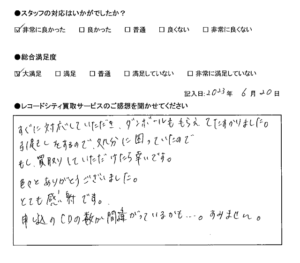 ●スタッフの対応はいかがでしたか？
☑非常に良かった □良かった □普通 □良くない □非常に良くない
●総合満足度
☑大満足 □満足 □普通 □満足していない □非常に満足していない
記入日:2023年 6月20日
●レコードシティ買取サービスのご感想を聞かせてください
すぐに対応していただき、ダンボールももらえてたすかりました。
引越しをするので、処分に困っていたので
もし買取りしていただけたら幸いです。
色々とありがとうございました。
とても感謝です。
申し込のCDの数が間違がっているかも…。すみません。